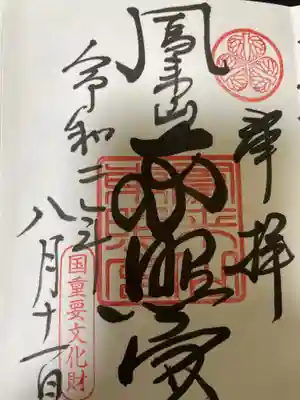 奉拝
鳳来山東照宮
令和二年八月十一日
国重要文化財